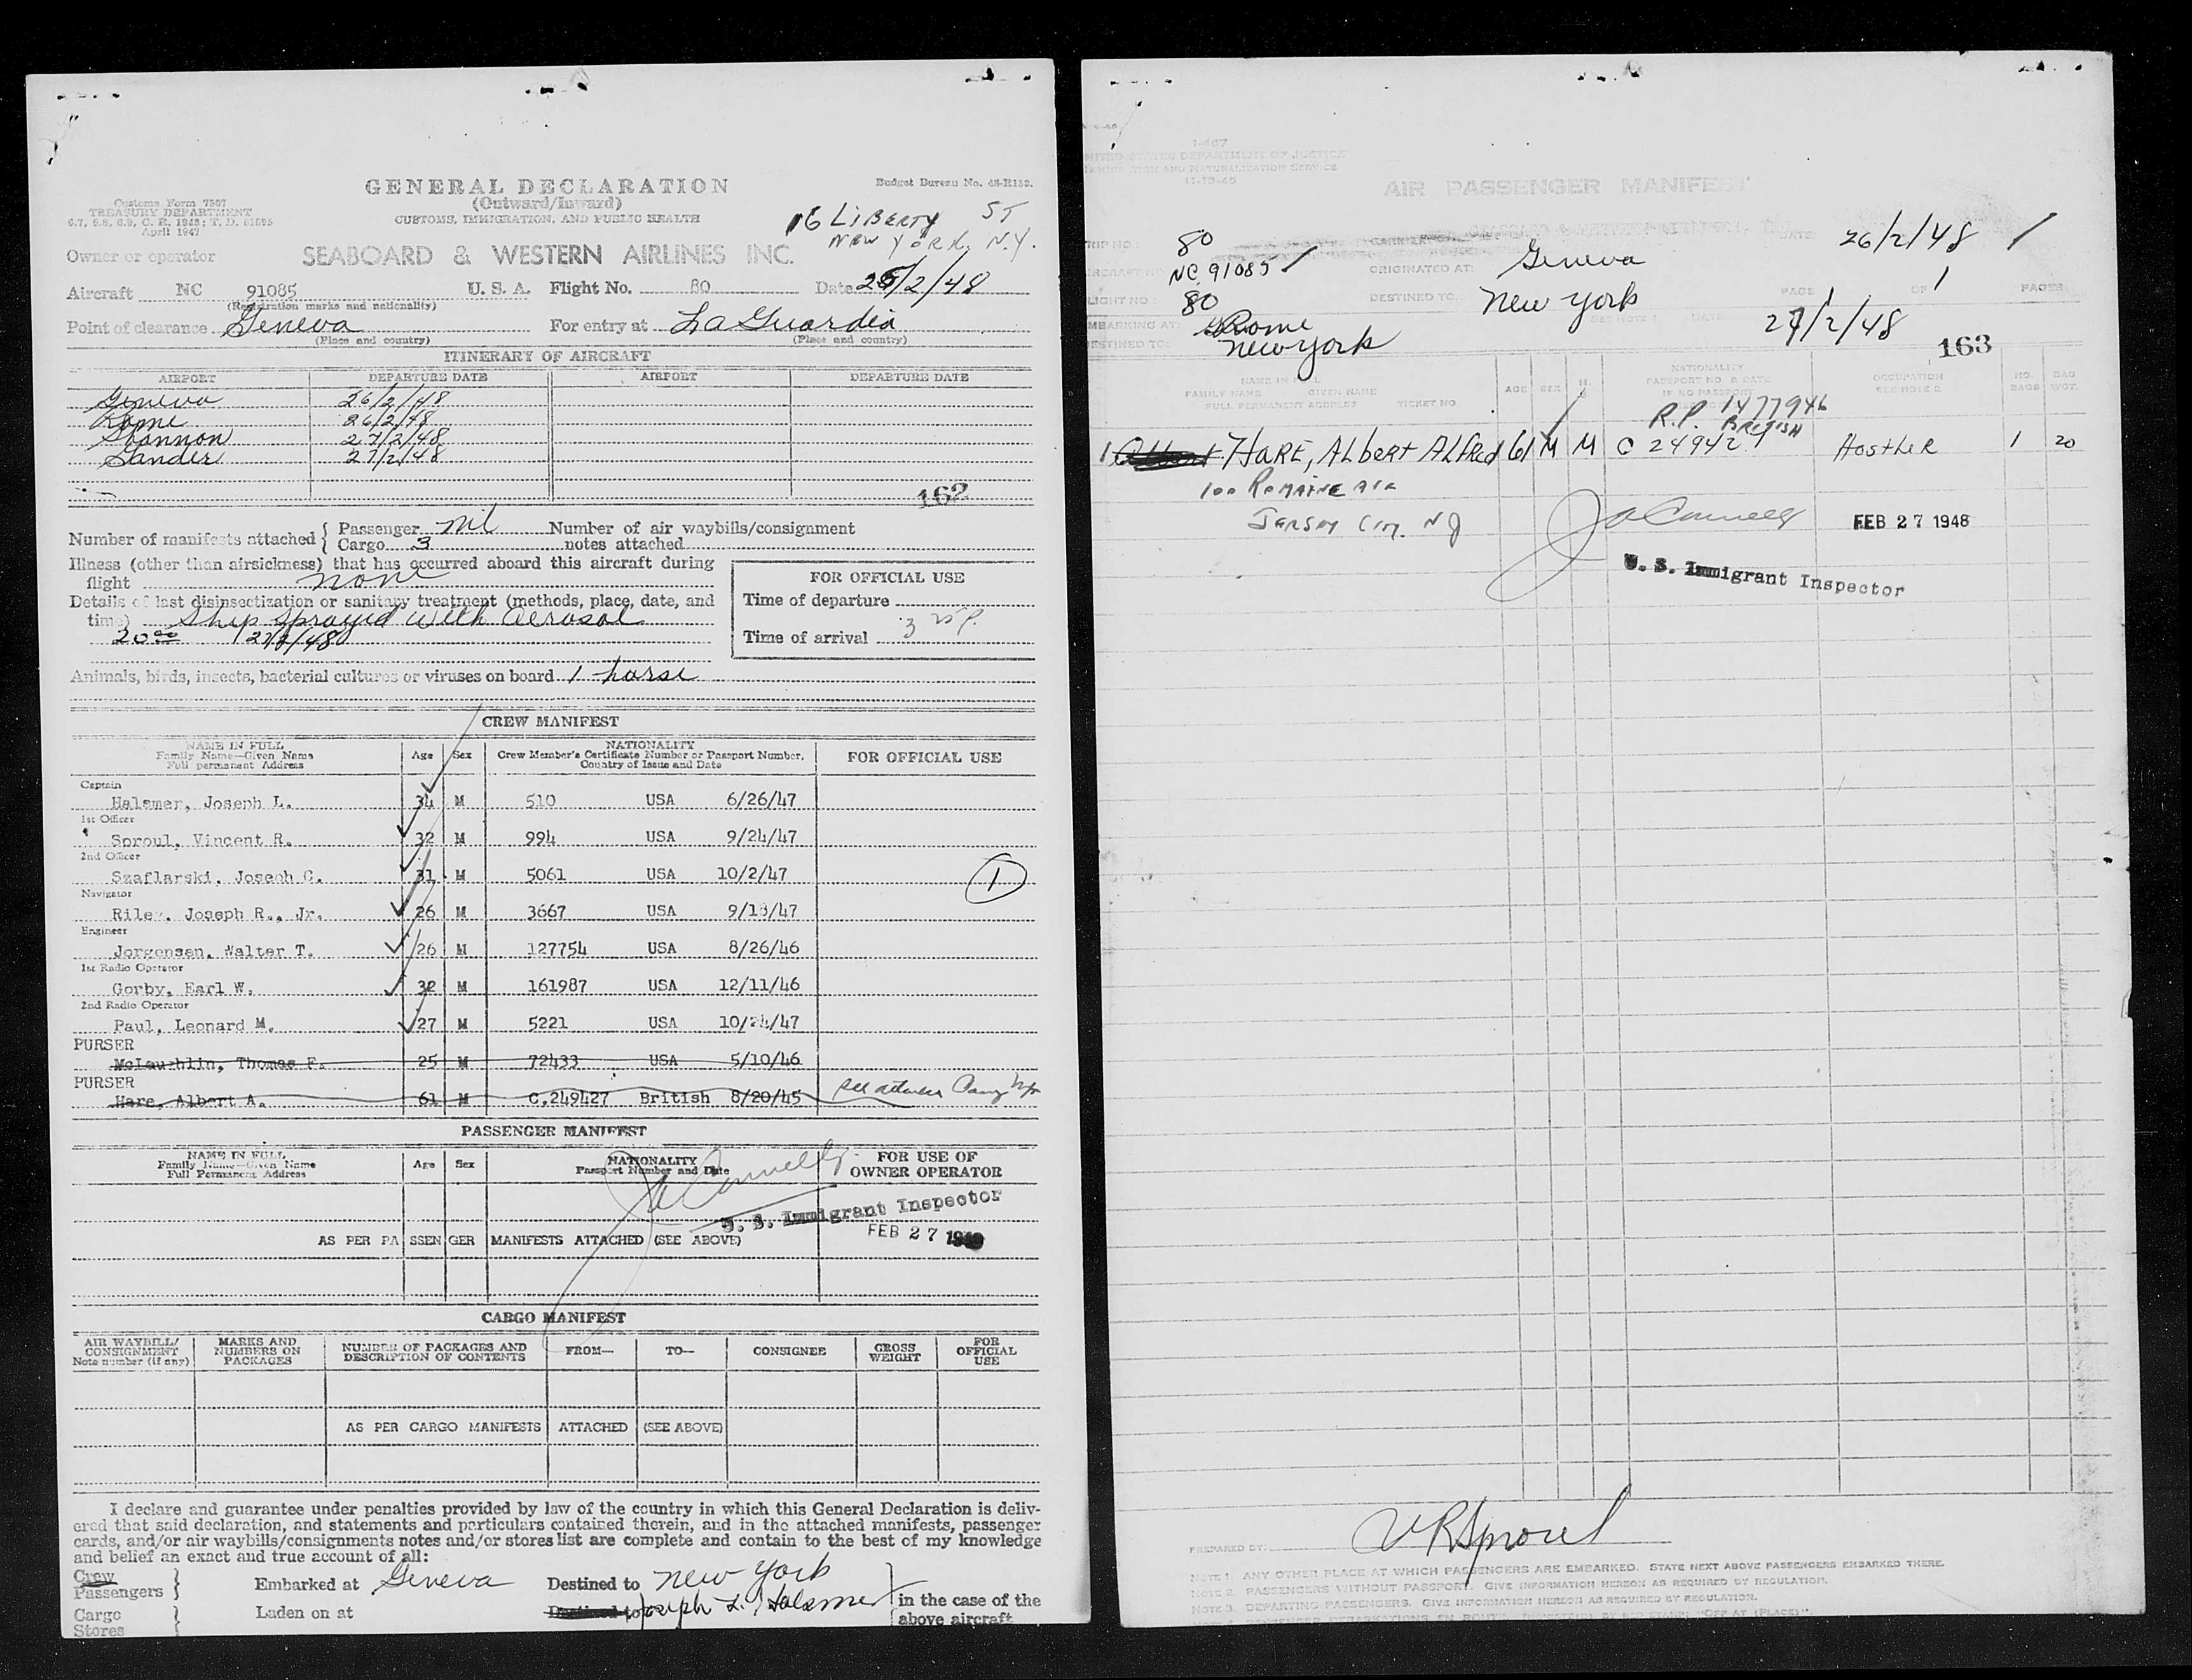 GENERAL DECLARATION
(Outward/Inward)
CUSTOMS, IMMIGRATION, AND PUBLIC HEALTH
Budget Bureau No. 48-R152.
Customs Form 7507
TREASURY DEPARTMENT
6.7, 9.8, 6.9, C. R. 1943; T. D. 51595
April 1947
16 LIBERTY ST
NEW YORK, N.Y.
Owner or operator SEABOARD & WESTERN AIRLINES INC.
Aircraft NC 91085 U. S. A. Flight No. 80 Date 26/2/48
(Registration marks and nationality)
Point of clearance Geneva For entry at La Guardia
(Place and country) (Place and country)
ITINERARY OF AIRCRAFT
AIRPORT DEPARTURE DATE AIRPORT DEPARTURE DATE
Geneva 26/2/48
Rome 26/2/48
Shannon 27/2/48
Gander 27/2/48
162
Number of manifests attached { Passenger nil Number of air waybills/consignment
Cargo 3 notes attached
Illness (other than airsickness) that has occurred aboard this aircraft during
flight none
Details of last disinsectization or sanitary treatment (methods, place, date, and
time) Ship sprayed with Aerosol
20 00 27/2/48
FOR OFFICIAL USE
Time of departure
Time of arrival 3 25 P.
Animals, birds, insects, bacterial cultures or viruses on board 1 horse
CREW MANIFEST
NAME IN FULL
Family Name—Given Name
Full permanent Address
Age Sex
NATIONALITY
Crew Member's Certificate Number or Passport Number,
Country of Issue and Date
FOR OFFICIAL USE
Captain
Halsmer, Joseph L. 34 M 510 USA 6/26/47
1st Officer
Sproul, Vincent R. 32 M 994 USA 9/24/47
2nd Officer
Szaflarski, Joseph C. 31 M 5061 USA 10/2/47
1
Navigator
Riley, Joseph R., Jr. 26 M 3667 USA 9/18/47
Engineer
Jorgensen, Walter T. 26 M 127754 USA 8/26/46
1st Radio Operator
Gorby, Earl W. 32 M 161987 USA 12/11/46
2nd Radio Operator
Paul, Leonard M. 27 M 5221 USA 10/24/47
PURSER
McLaughlin, Thomas F. 25 M 72433 USA 5/10/46
PURSER
Hare, Albert A. 61 M C.249427 British 8/20/45
PASSENGER MANIFEST
NAME IN FULL
Family Name—Given Name
Full Permanent Address
Age Sex
NATIONALITY
Passport Number and Date
FOR USE OF
OWNER OPERATOR
U. S. Immigrant Inspector
FEB 27 1948
AS PER PASSENGER MANIFESTS ATTACHED (SEE ABOVE)
CARGO MANIFEST
AIR WAYBILL/
CONSIGNMENT
Note number (if any)
MARKS AND
NUMBERS ON
PACKAGES
NUMBER OF PACKAGES AND
DESCRIPTION OF CONTENTS
FROM—
TO—
CONSIGNEE
GROSS
WEIGHT
FOR
OFFICIAL
USE
AS PER CARGO MANIFESTS ATTACHED (SEE ABOVE)
I declare and guarantee under penalties provided by law of the country in which this General Declaration is deliv-
ered that said declaration, and statements and particulars contained therein, and in the attached manifests, passenger
cards, and/or air waybills/consignments notes and/or stores list are complete and contain to the best of my knowledge
and belief an exact and true account of all:
Crew
Passengers } Embarked at Geneva Destined to New York
Cargo
Stores } Laden on at Destined to Joseph L. Halsmer
in the case of the
above aircraft
I-467
UNITED STATES DEPARTMENT OF JUSTICE
IMMIGRATION AND NATURALIZATION SERVICE
11-13-45
AIR PASSENGER MANIFEST
TRIP NO: 80 DATE: 26/2/48
AIRCRAFT NO NC 91085 ORIGINATED AT: Geneva
FLIGHT NO: 80 DESTINED TO: New York PAGE 1 OF 1 PAGES
EMBARKING AT: Rome SEE NOTE 1 DATE 27/2/48
DESTINED TO: New York
163
NAME IN FULL
FAMILY NAME GIVEN NAME
FULL PERMANENT ADDRESS TICKET NO
AGE SEX
NATIONALITY
PASSPORT NO. & DATE
IF NO PASSPORT
OCCUPATION
SEE NOTE 2
NO.
BAGS
BAG
WGT.
R.P. 1477946
BRITISH
1 HARE, Albert Alfred 61 M M C 249427 Hostler 1 20
100 Romaine Ave
Jersey City NJ
FEB 27 1948
U. S. Immigrant Inspector
PREPARED BY: V R Sproul
NOTE 1. ANY OTHER PLACE AT WHICH PASSENGERS ARE EMBARKED. STATE NEXT ABOVE PASSENGERS EMBARKED THERE.
NOTE 2. PASSENGERS WITHOUT PASSPORT. GIVE INFORMATION HEREON AS REQUIRED BY REGULATION.
NOTE 3. DEPARTING PASSENGERS. GIVE INFORMATION HEREON AS REQUIRED BY REGULATION.